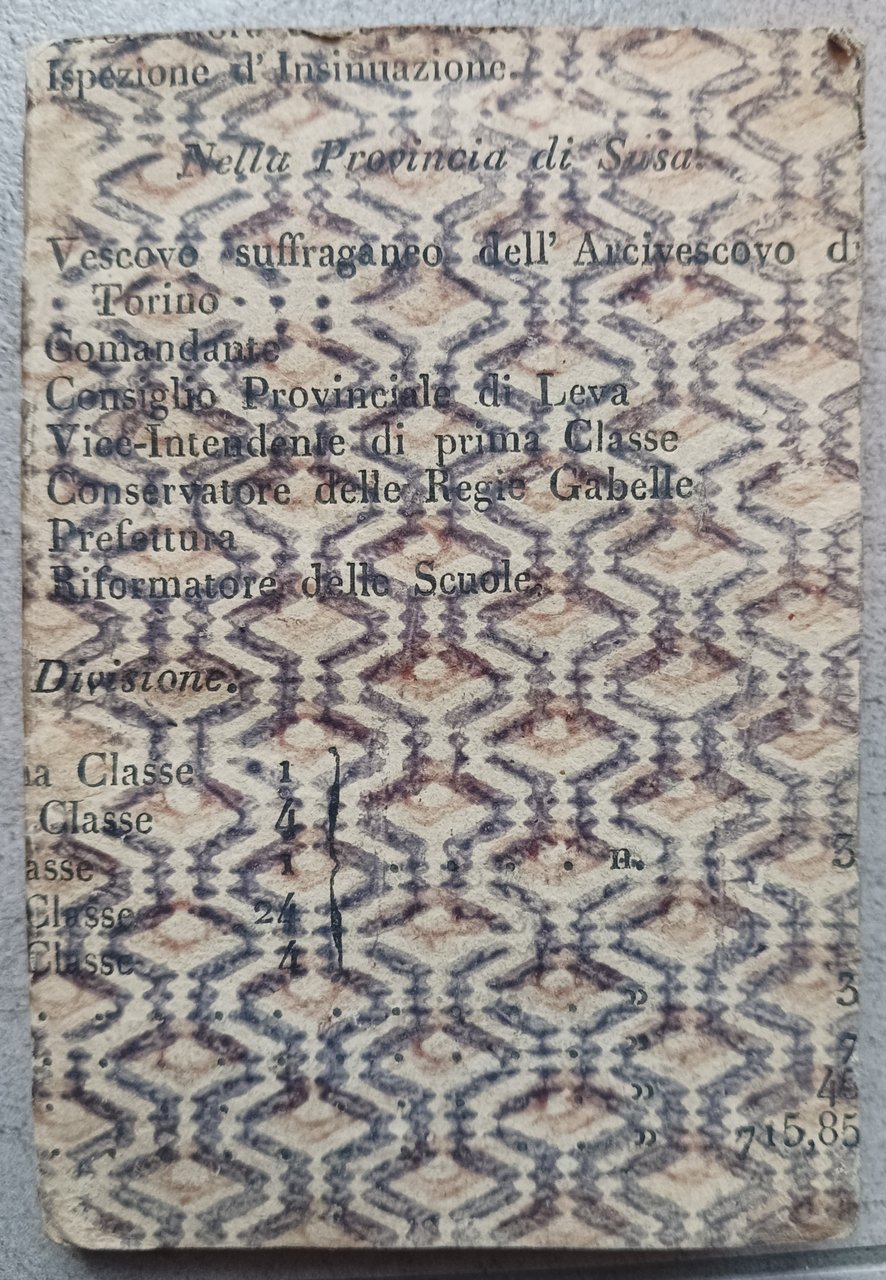 Ispezione d' Insinuazione.
Nella Provincia di Susa.
Vescovo suffraganeo dell' Arcivescovo di
Torino . . .
Comandante
Consiglio Provinciale di Leva
Vice-Intendente di prima Classe
Conservatore delle Regie Gabelle
Prefettura
Riformatore delle Scuole.
Divisione.
na Classe . 1
Classe 4
asse 1 . . . . n. 3
Classe 24
Classe 4
. . . . . . . . . . » 3
. . . . . . . . . . » 7
. . . . . . . . . . » 46
. . . . . . . . . . » 715,85